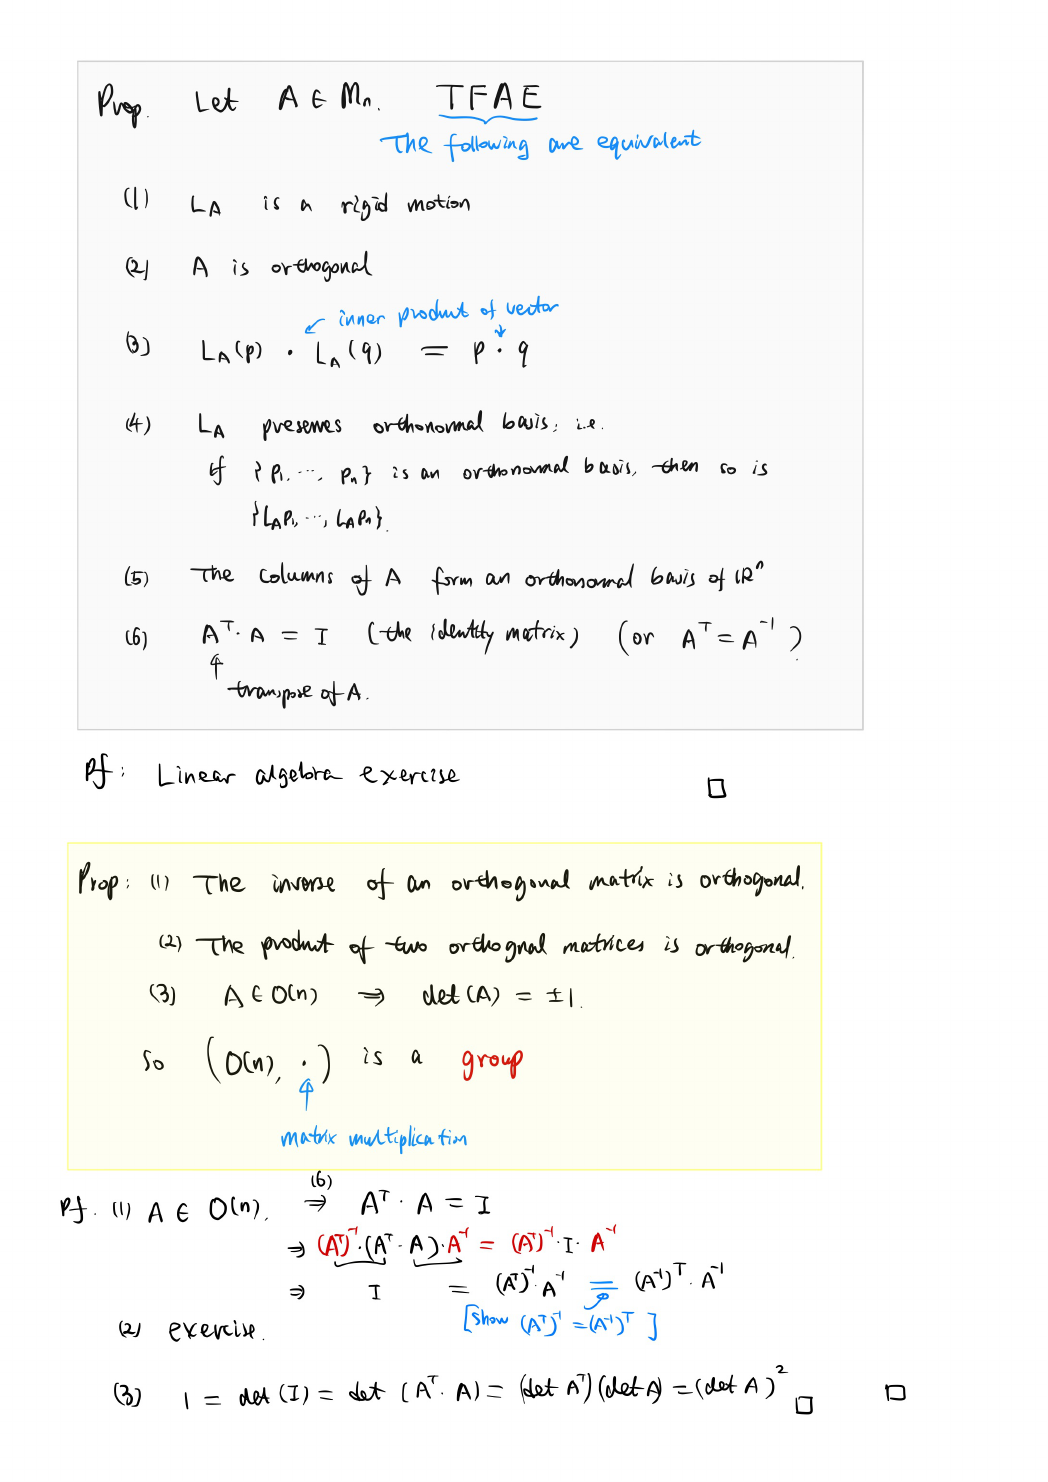 Prop. Let A ∈ Mn. TFAE
The following are equivalent
(1) L_A is a rigid motion
(2) A is orthogonal
inner product of vector
(3) L_A(p) · L_A(q) = p · q
(4) L_A preserves orthonormal basis, i.e.
if {p₁, ..., pₙ} is an orthonormal basis, then so is
{L_A p₁, ..., L_A pₙ}.
(5) The columns of A form an orthonormal basis of ℝⁿ
(6) Aᵀ · A = I (the identity matrix) (or Aᵀ = A⁻¹)
transpose of A.
Pf: Linear algebra exercise □
Prop: (1) The inverse of an orthogonal matrix is orthogonal.
(2) The product of two orthognal matrices is orthogonal.
(3) A ∈ O(n) ⇒ det(A) = ±1.
So (O(n), ·) is a group
matrix multiplication
Pf. (1) A ∈ O(n). (6) ⇒ Aᵀ · A = I
⇒ (Aᵀ)⁻¹ · (Aᵀ · A) · A⁻¹ = (Aᵀ)⁻¹ · I · A⁻¹
⇒ I = (Aᵀ)⁻¹ · A⁻¹ = (A⁻¹)ᵀ · A⁻¹
[Show (Aᵀ)⁻¹ = (A⁻¹)ᵀ]
(2) exercise.
(3) 1 = det(I) = det(Aᵀ · A) = (det Aᵀ)(det A) = (det A)² □ □